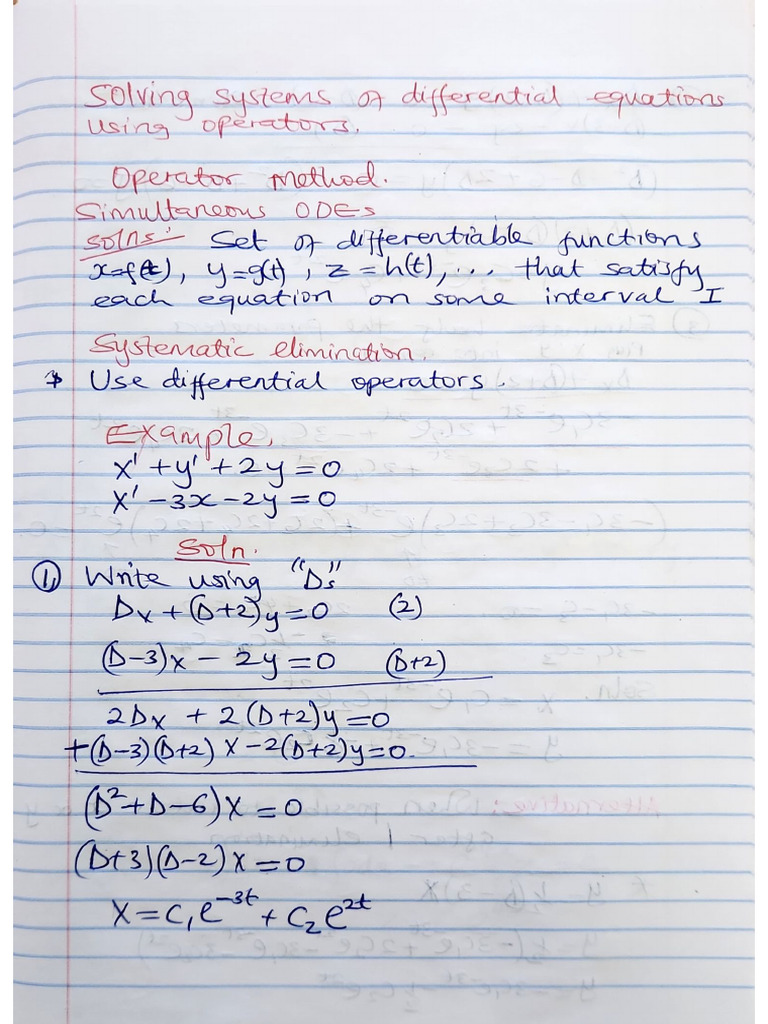 Solving systems of differential equations
using operators.
Operator Method.
Simultaneous ODEs
solns:- Set of differentiable functions
x=f(t), y=g(t), z=h(t),... that satisfy
each equation on some interval I
Systematic elimination.
Use differential operators.
Example,
x' + y' + 2y = 0
x' - 3x - 2y = 0
Soln.
① Write using "Ds"
Dx + (D+2)y = 0 (2)
(D-3)x - 2y = 0 (D+2)
2Dx + 2(D+2)y = 0
+(D-3)(D+2)x - 2(D+2)y = 0.
(D²+D-6)x = 0
(D+3)(D-2)x = 0
x = c₁e⁻³ᵗ + c₂e²ᵗ